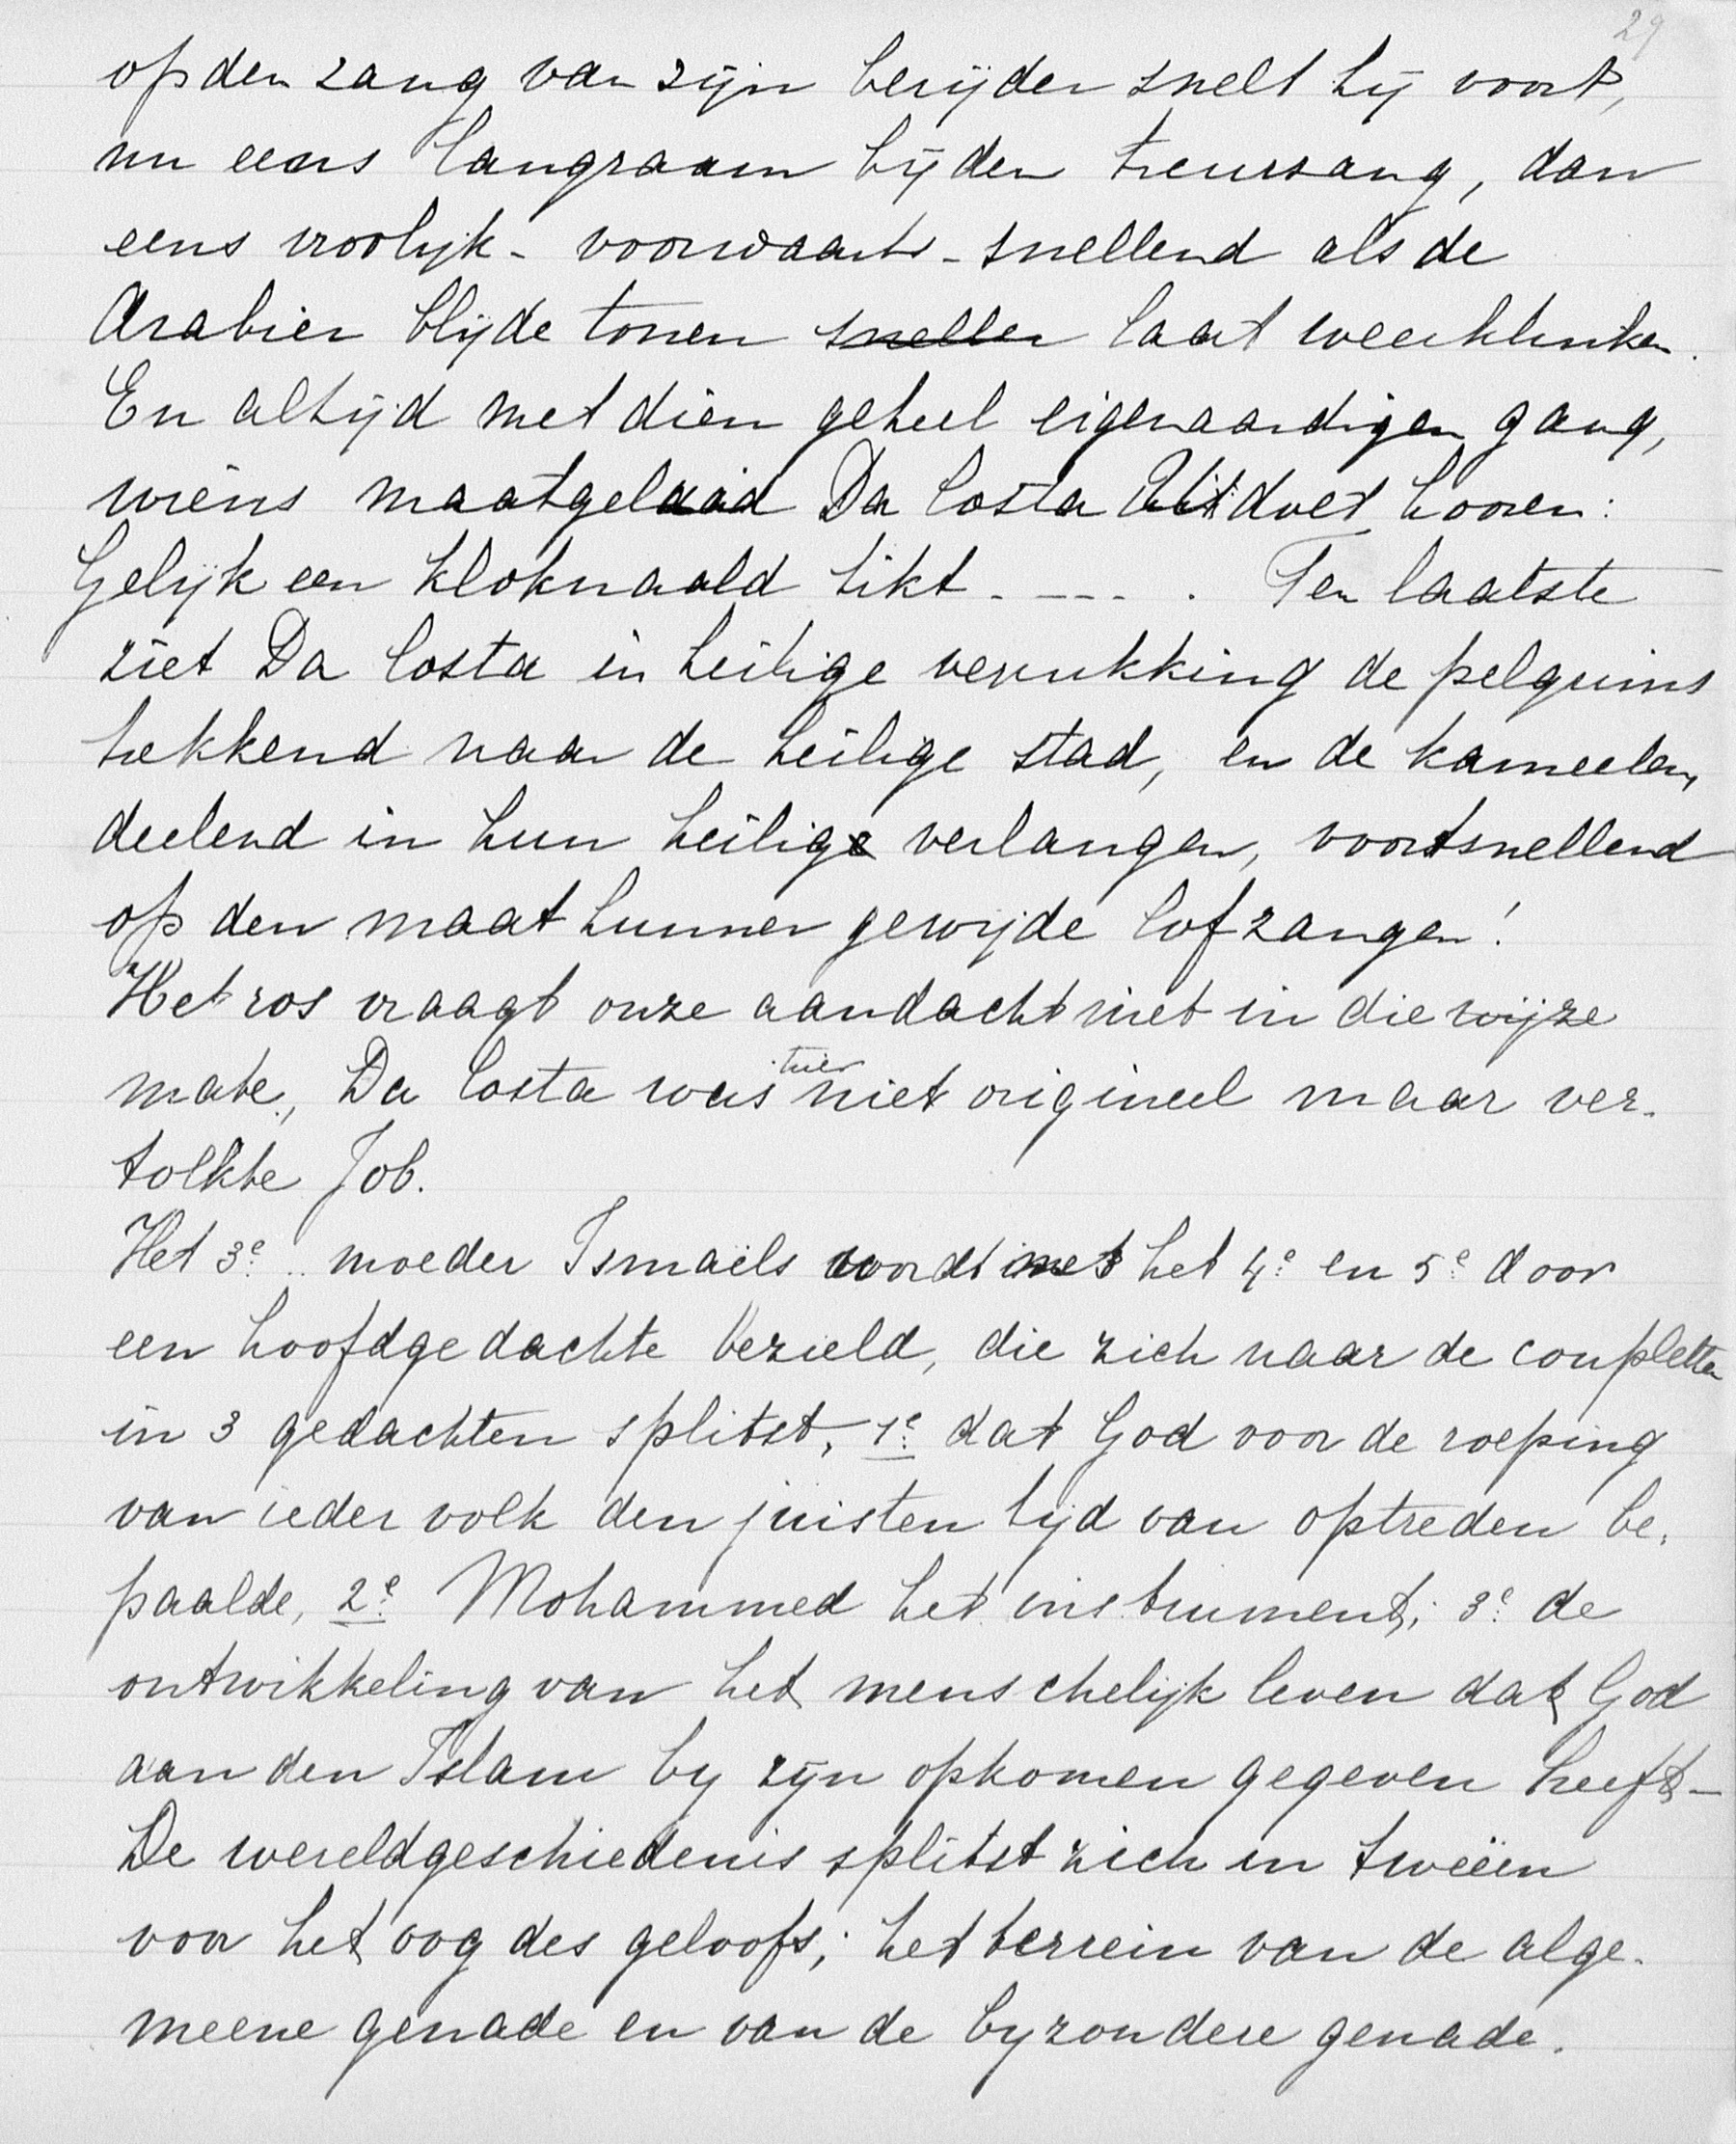 29
op den zang van zijn berijder snelt hij voort,
nu eens langzaam bij den treurzang, dan
eens vroolijk - voorwaarts - snellend als de
Arabier blijde tonen sneller laat weerklinken.
En altijd met dien geheel eigenaardigen gang,
wiens maatgeluid Da Costa doet hooren:
Gelijk een kloknaald tikt - - - - . Ten laatste
ziet Da Costa in heilige verrukking de pelgrims
trekkend naar de heilige stad, en de kameelen,
deelend in hun heilig verlangen, voortsnellend
op den maat hunner gewijde lofzangen!
Het ros vraagt onze aandacht niet in die wijze
mate, Da Costa was hier niet origineel maar ver-
tolkte Job.
Het 3e .. moeder Ismaëls wordt met het 4e en 5e door
een hoofdgedachte bezield, die zich naar de coupletten
in 3 gedachten splitst, 1e dat God voor de roeping
van ieder volk den juisten tijd van optreden be-
paalde, 2e Mohammed het instrument; 3e de
ontwikkeling van het menschelijk leven dat God
aan den Islam bij zijn opkomen gegeven heeft -
De wereldgeschiedenis splitst zich in tweëen
voor het oog des geloofs; het terrein van de alge-
meene genade en van de byzondere genade.